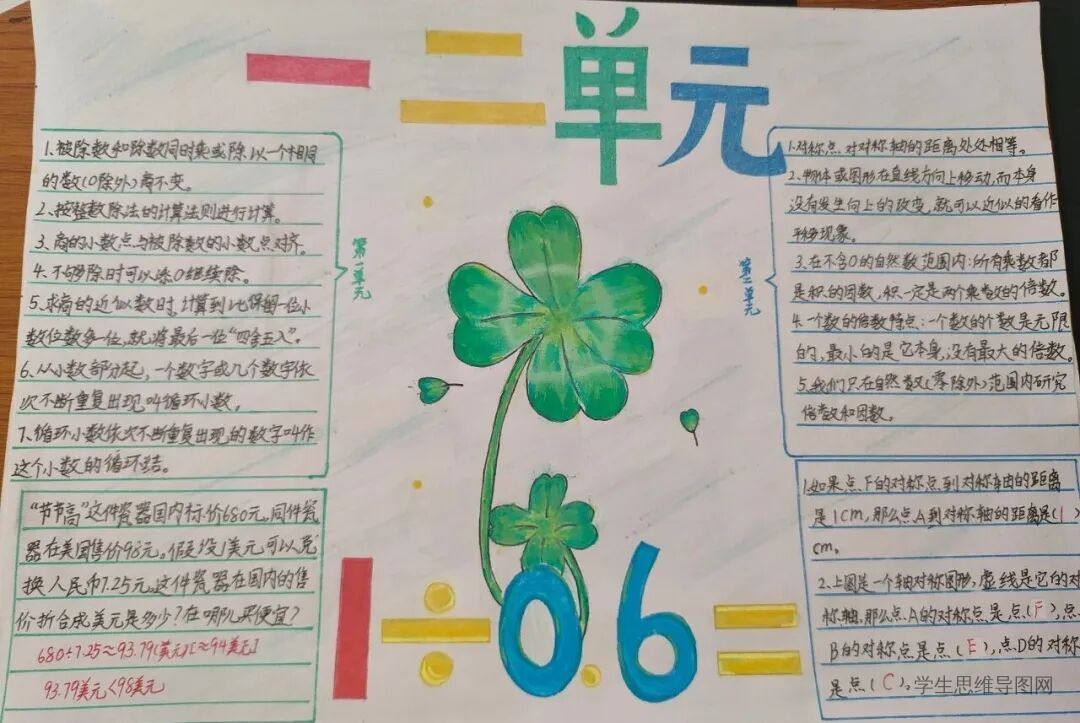 一二单元
1、被除数和除数同时乘或除以一个相同
的数(0除外)商不变。
2、按整数除法的计算法则进行计算。
3、商的小数点与被除数的小数点对齐。
4、不够除时可以添0继续除。
5、求商的近似数时,计算到比保留一位小
数位数多一位,就将最后一位“四舍五入”。
6、从小数部分起,一个数字或几个数字依
次不断重复出现叫循环小数。
7、循环小数依次不断重复出现的数字叫作
这个小数的循环结。
第一单元
“节节高”这件瓷器国内标价680元,同件瓷
器在美国售价98元。假设1美元可以兑
换人民币7.25元。这件瓷器在国内的售
价折合成美元是多少?在哪儿买便宜?
680÷7.25≈93.79(美元)[≈94美元]
93.79美元<98美元
1÷0.6=
第二单元
1.对称点对对称轴的距离处处相等。
2、物体或图形在直线方向上移动,而本身
没有发生向上的改变,就可以近似的看作
平移现象。
3、在不含0的自然数范围内:所有乘数都
是积的因数,积一定是两个乘数的倍数。
4.一个数的倍数特点:一个数的个数是无限
的,最小的是它本身,没有最大的倍数。
5、我们只在自然数(零除外)范围内研究
倍数和因数。
1.如果点F的对称点到对称轴的距离
是1cm,那么点A到对称轴的距离是(1)
cm。
2、上图是一个轴对称图形,虚线是它的对
称轴,那么点A的对称点是点(F),点
B的对称点是点(E),点D的对称
是点(C)。
学生思维导图网